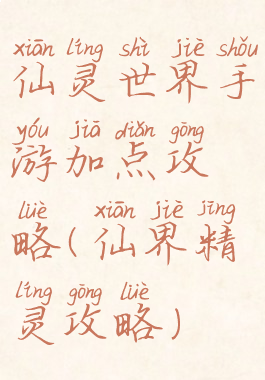 xiān líng shì jiè shǒu
仙灵世界手
yóu jiā diǎn gōng
游加点攻
lüè xiān jiè jīng
略(仙界精
líng gōng lüè
灵攻略)